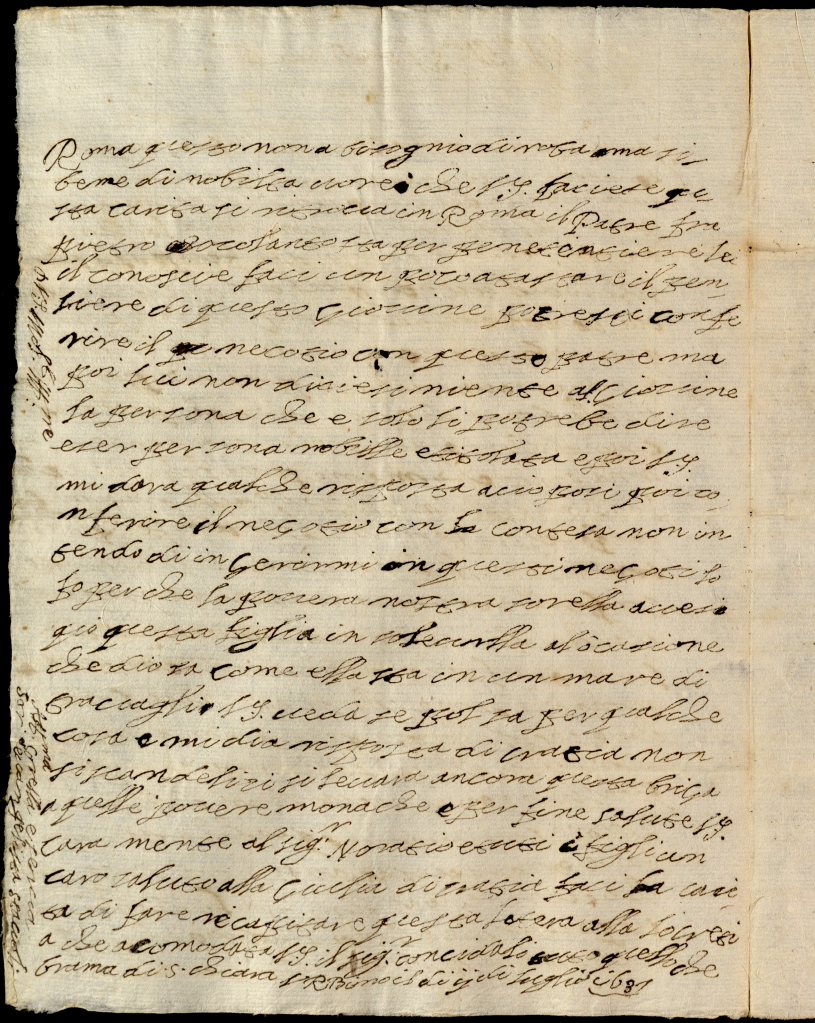 Roma questo non a bisognio di roba ma si
bene di nobilta vorei che V.S. faciese que
sta carita si ritrova in Roma il Patre fra
Pietro da penetentiere lei
il conoscie faci un poco a tastare il pen
siere di questo Giovine potresti confe
rire il negotio con questo patre ma
poi lui non diciesi niente al Giovine
la persona che e, solo li potrebe dire
eser persona nobille e poi V.S.
mi dara qualche risposta acio posi poi co
nferire il negotio con la contesa non in
tendo di ingerirmi in questi negoti lo
fo perche la povera nostra sorella avesi
questa figlia in al ocasione
che dio sa come ella sta in un mare di
travagli V.S. veda se pol sa per qualche
cosa e mi dia risposta di gratia non
si scandelizi si levara ancora questa briga
a quelle povere monache e per fine salute V.S.
cara mente al sig.r Noratio e tuti i figli un
caro saluto alla Giulia di gratia faci la cari
ta di fare recapitare questa letera alla
a che acomodata V.S. il sig.r concieda li tuto quello che
brama di S. chiara il di ij di luglio 1631
di V.S. Molto Ill.re
Aff.ma sorella e serva
Sor